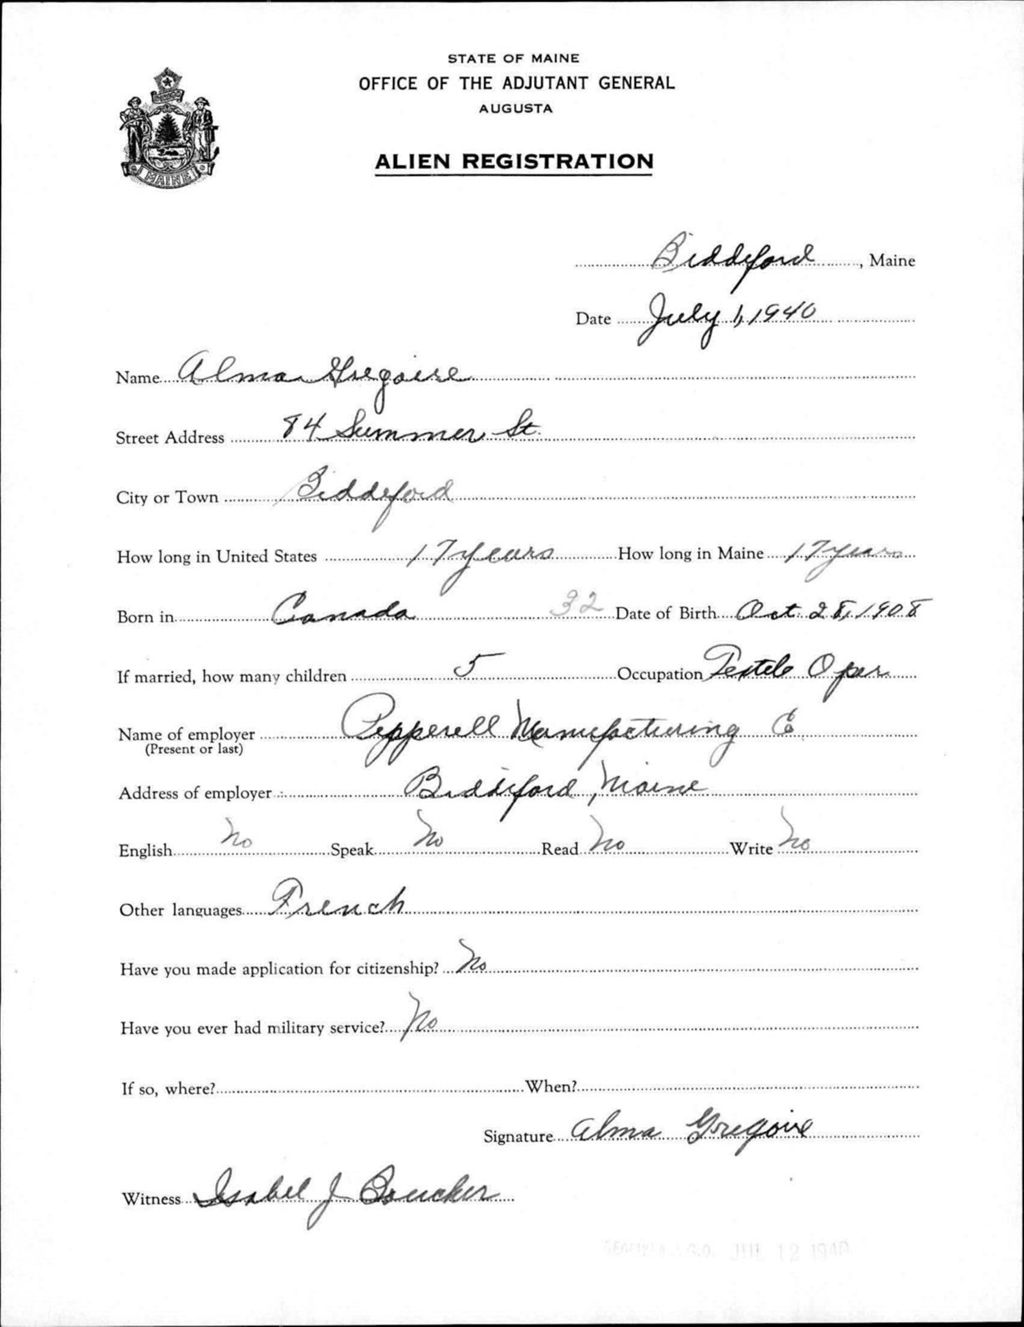 STATE OF MAINE
OFFICE OF THE ADJUTANT GENERAL
AUGUSTA
ALIEN REGISTRATION
MAINE
Biddeford, Maine
Date July 1, 1940
Name Alma Gregoire
Street Address 84 Summer St.
City or Town Biddeford
How long in United States 17 years How long in Maine 17 years
Born in Canada 32 Date of Birth Oct. 28, 1908
If married, how many children 5 Occupation Textile Oper
Name of employer Pepperell Manufacturing Co
(Present or last)
Address of employer Biddeford, Maine
English No Speak No Read No Write No
Other languages French
Have you made application for citizenship? No
Have you ever had military service? No
If so, where? When?
Signature Alma Gregoire
Witness Isabel J Boucher
A.G.O. JUL 12 1940